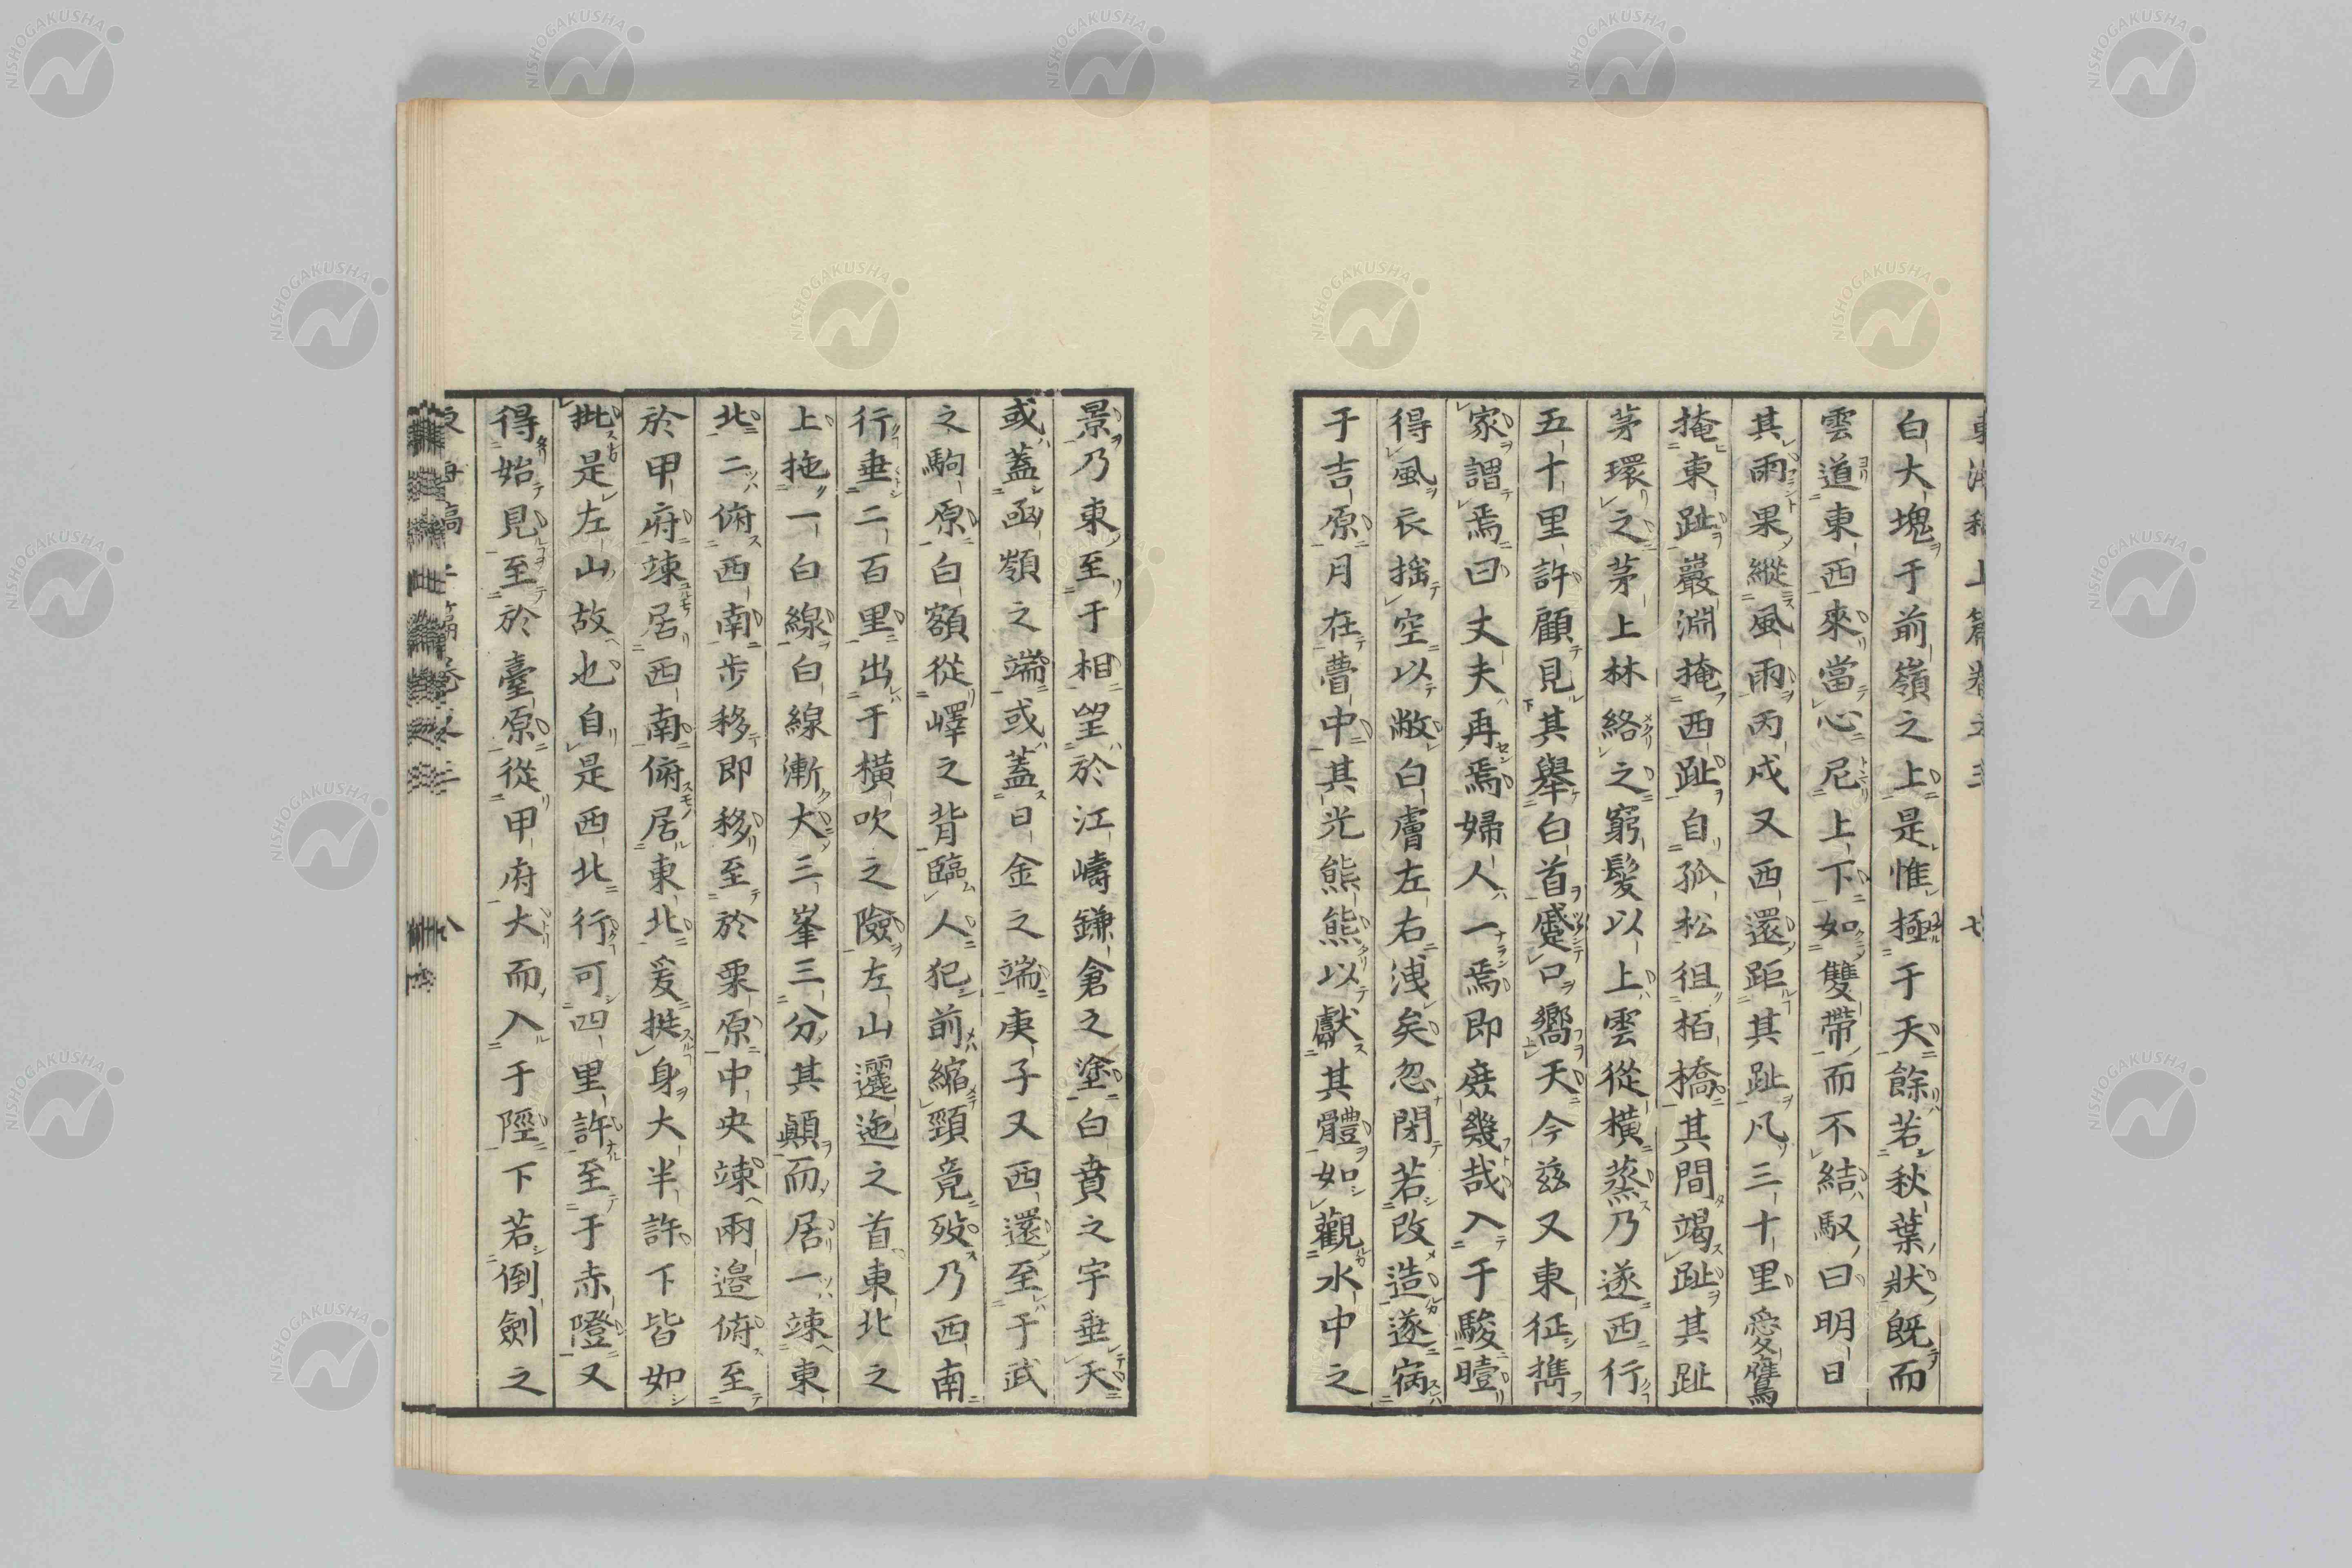 白大塊于前嶺之上是惟極于天餘若秋葉狀既而
雲道東西來當心尼上下如雙帶而不結馭曰明日
其雨果縱風雨丙戌又西還距其趾凡三十里愛鷹
掩東趾巖淵掩西趾自孤松徂柏橋其間竭趾其趾
茅環之茅上林絡之窮髮以上雲從橫蒸乃遂西行
五十里許顧見其舉白首蹙口嚮天今茲又東征攜
家謂焉曰丈夫再焉婦人一焉即庶幾哉入于駿曀
得風衣搖空以敝白膚左右洩矣忽閉若改造遂病
于吉原月在瞢中其光熊熊以獻其體如觀水中之
景乃東至于相望於江嶹鎌倉之塗白賁之宇垂天
或蓋函嶺之端或蓋日金之端庚子又西還至于武
之駒原白額從嶧之背臨人犯前縮頸竟歿乃西南
行垂二百里出于橫吹之險左山邐迤之首東北之
上拖一白線白線漸大三峯三分其顚而居一竦東
北二俯西南步移即移至於栗原中央竦兩邊俯至
於甲府竦居西南俯居東北爰拱身大半許下皆如
批是左山故也自是西北行可四里許至于赤隥又
得始見至於臺原從甲府大而入于陘下若倒劍之
NISHOGAKUSHA